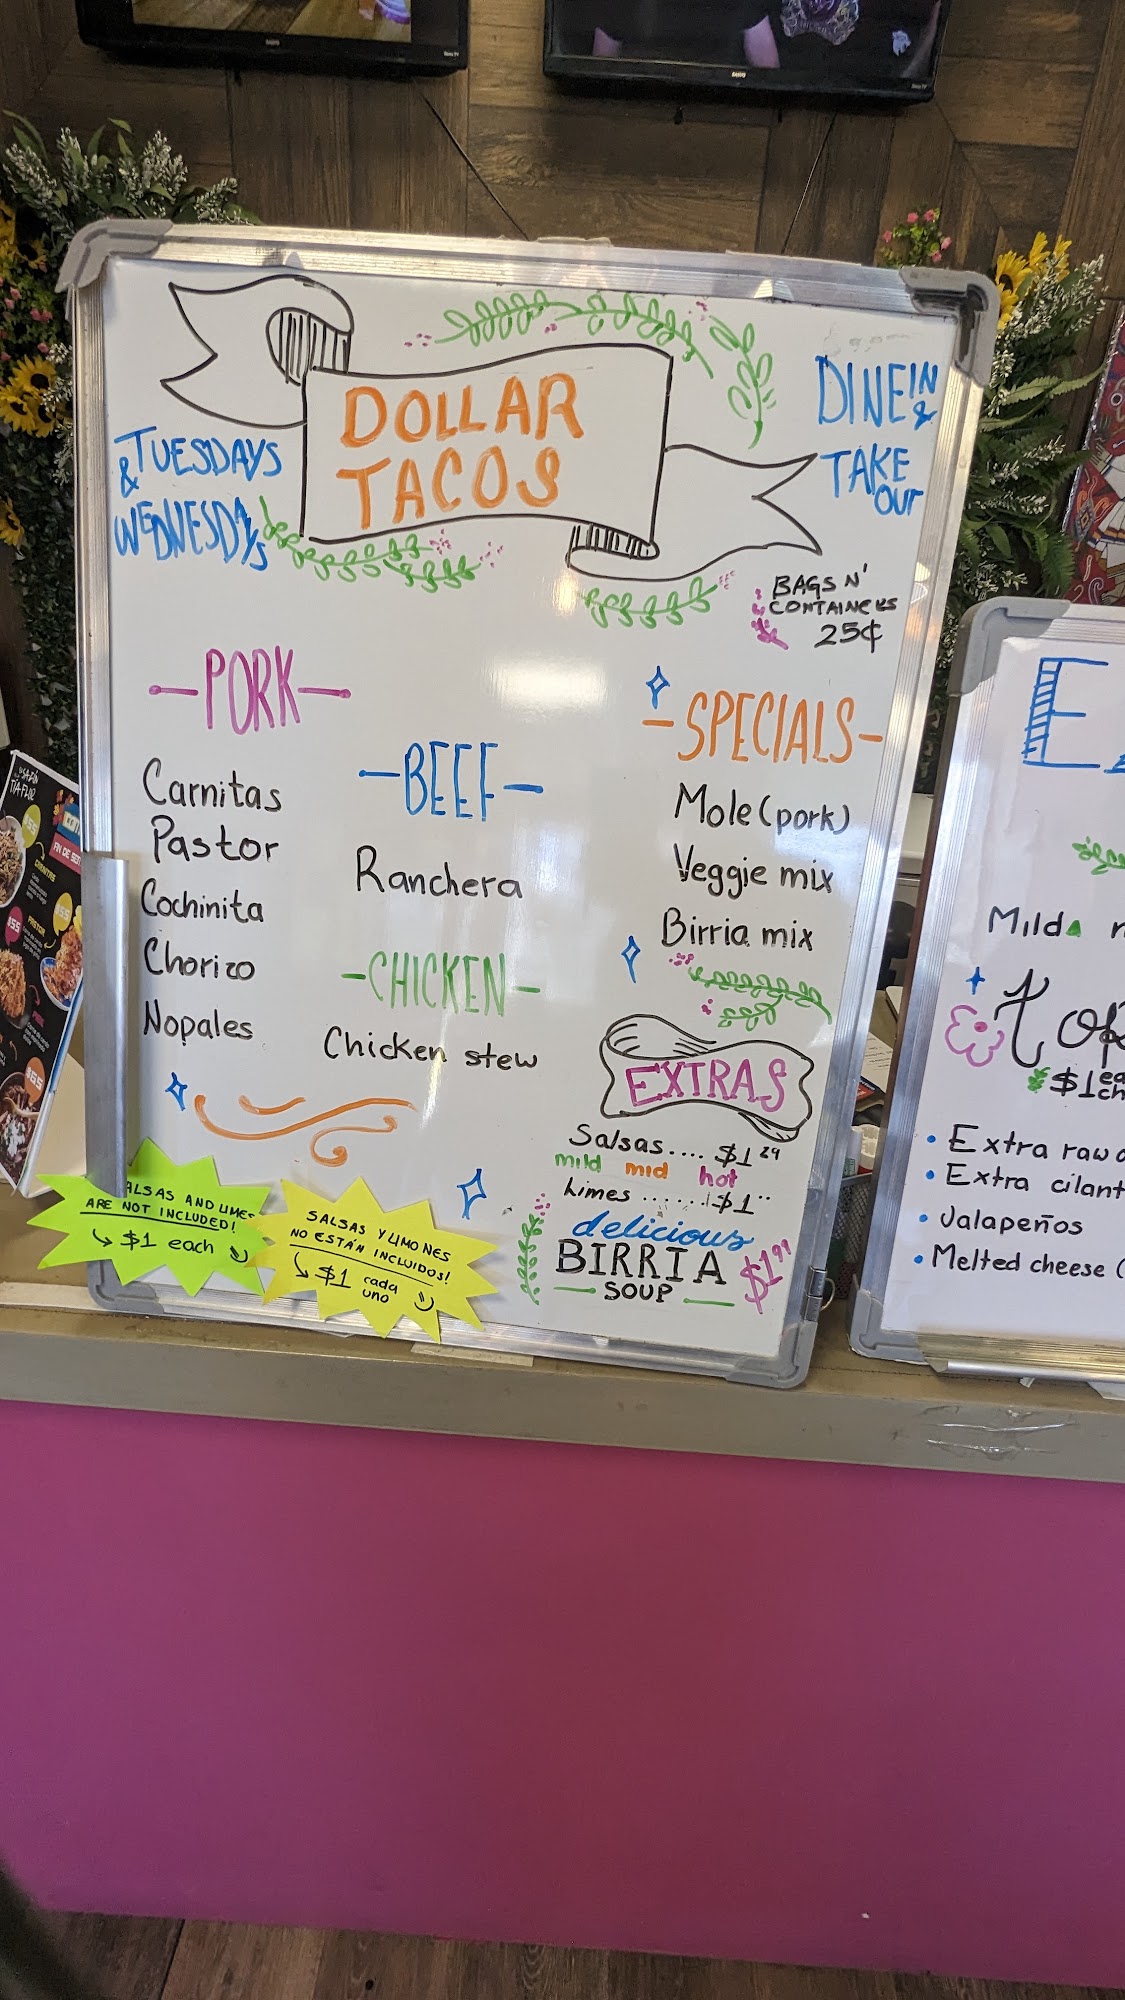 DOLLAR
TACOS
TUESDAYS
&
WEDNESDAYS
DINE IN
&
TAKE
OUT
BAGS N'
CONTAINERS
25¢
-PORK-
Carnitas
Pastor
Cochinita
Chorizo
Nopales
-BEEF-
Ranchera
-CHICKEN-
Chicken stew
-SPECIALS-
Mole (pork)
Veggie mix
Birria mix
EXTRAS
Salsas.... $1 29
mild mid hot
Limes ...... $1
delicious
BIRRIA $1.99
SOUP
ALSAS AND LIMES
ARE NOT INCLUDED!
$1 each
SALSAS Y LIMONES
NO ESTÁN INCLUIDOS!
$1 cada
uno
Mild
$1 ea
ch
Extra raw
Extra cilant
Jalapeños
Melted cheese (
TÍA FLOR
$55
PASTOR
$55
$65